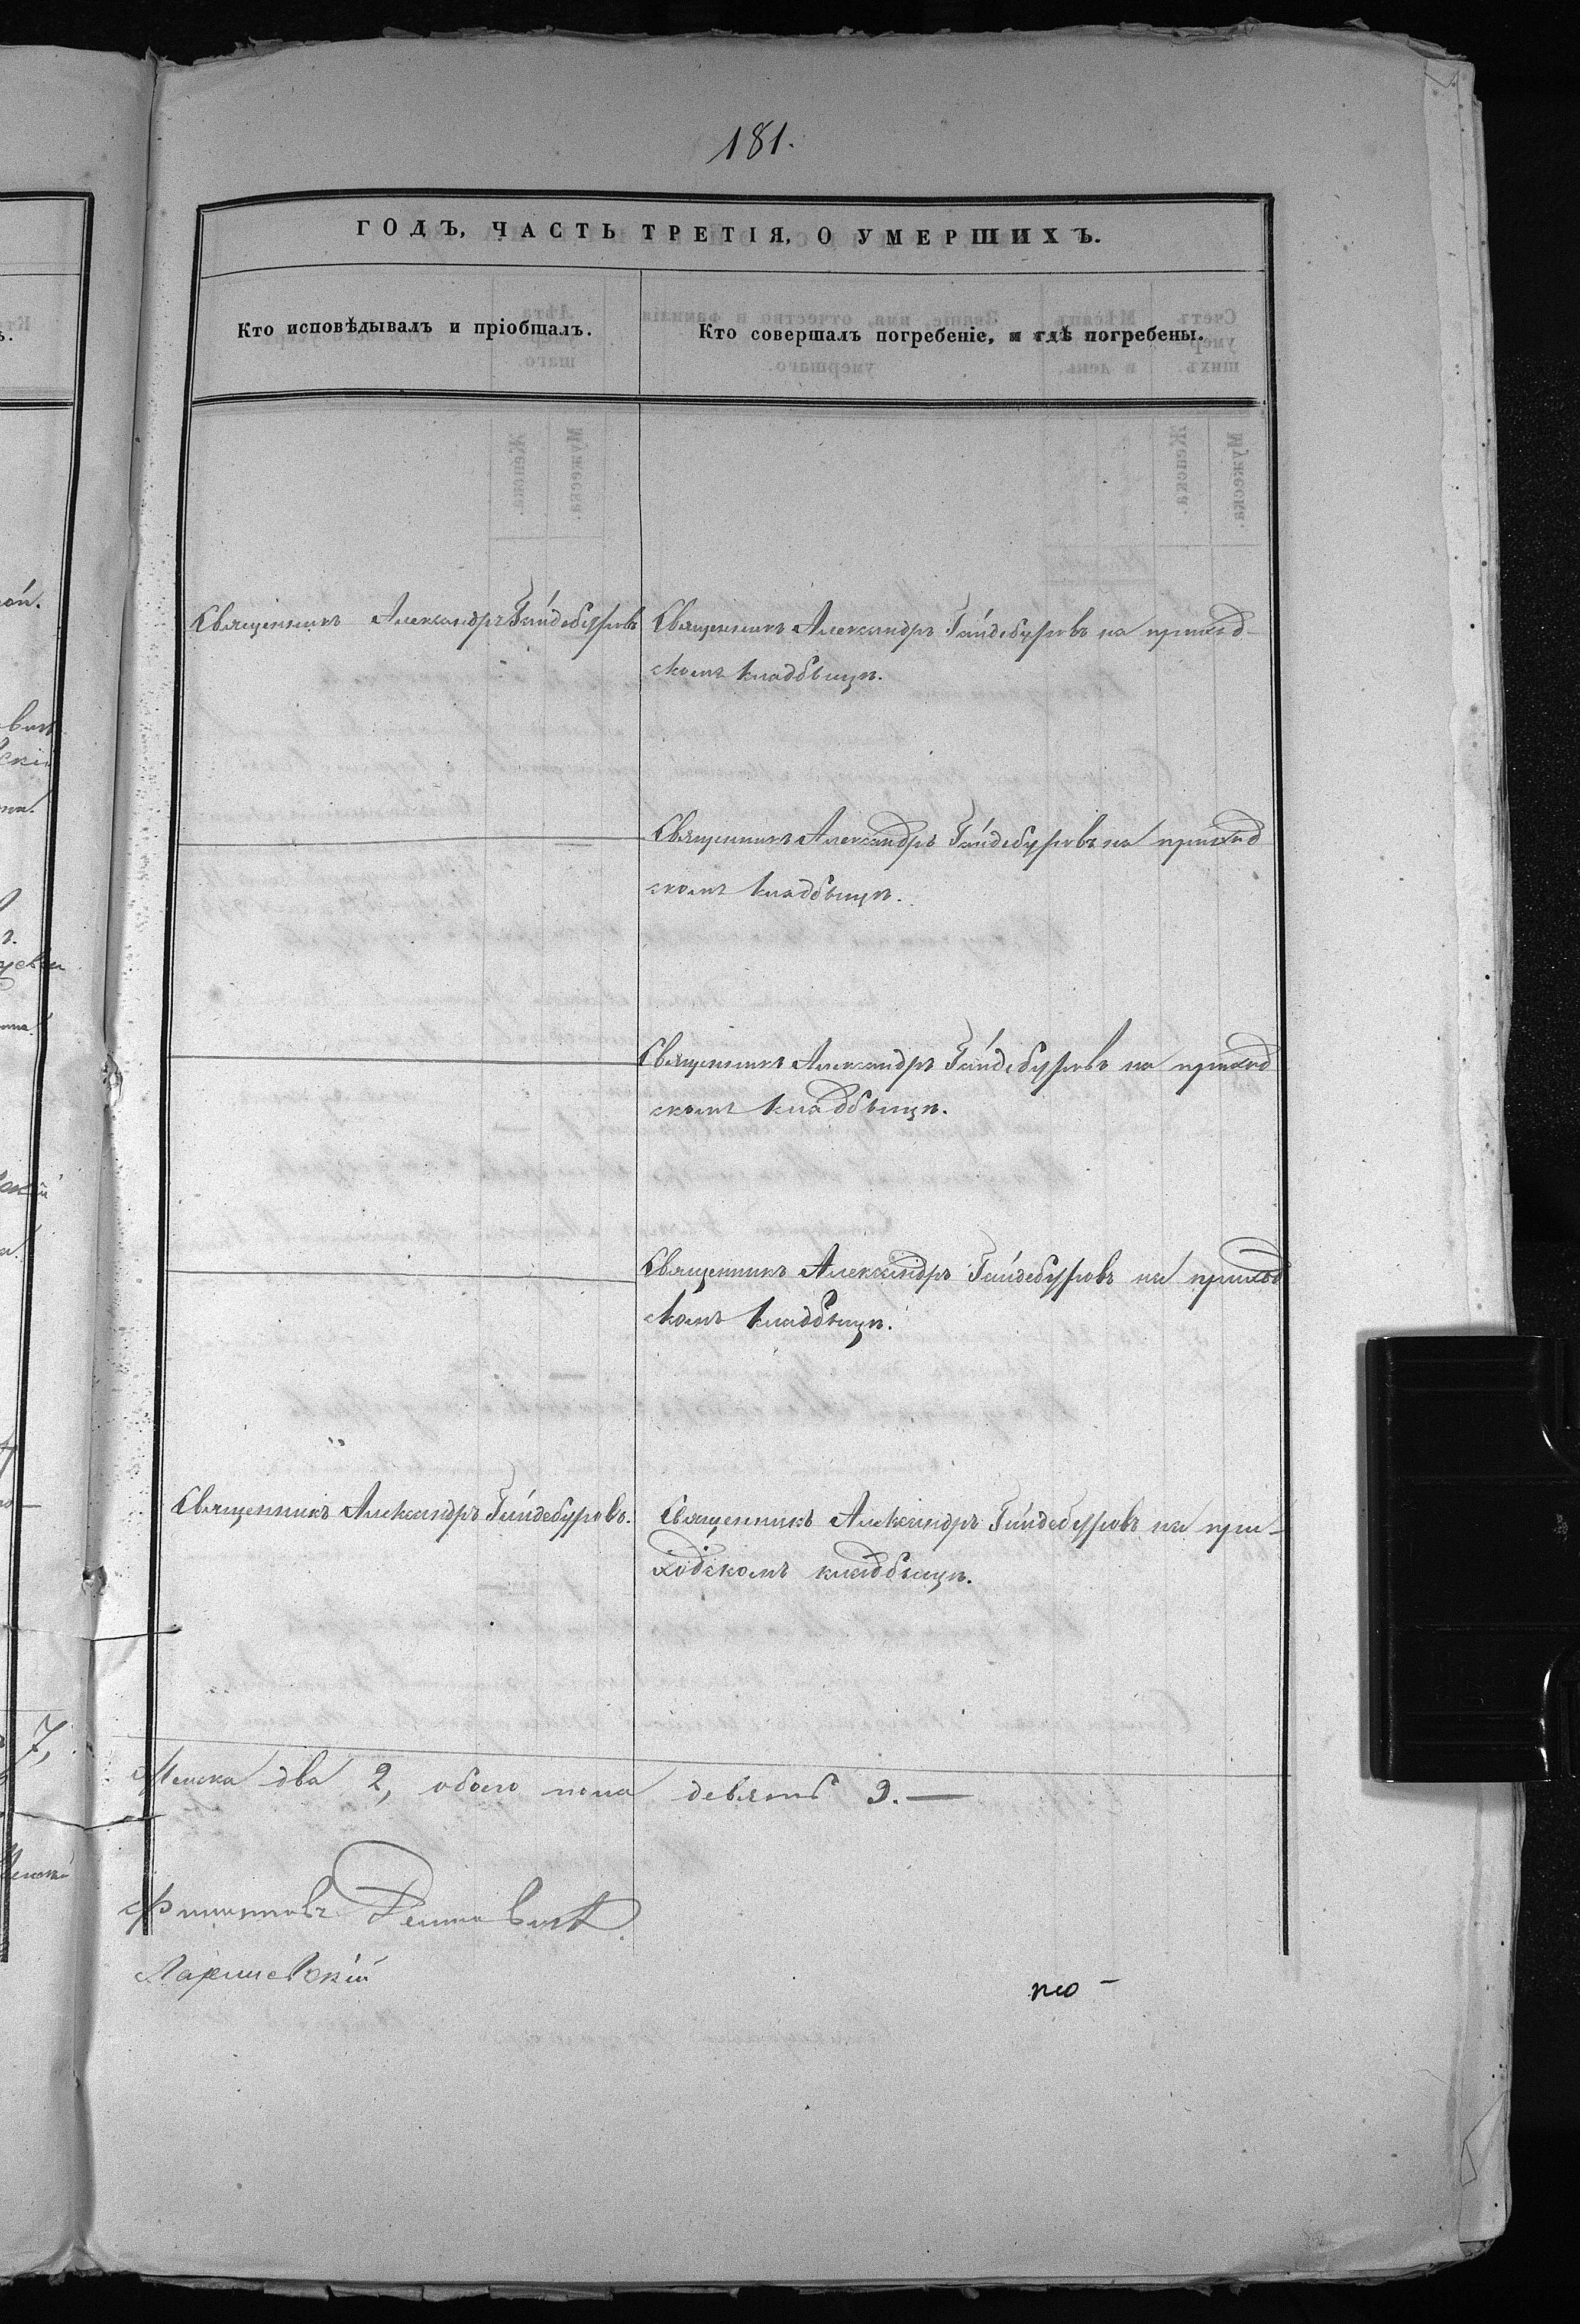 181.
ГОДЪ, ЧАСТЬ ТРЕТІЯ, О УМЕРШИХЪ.
Кто исповѣдывалъ и пріобщалъ.
Кто совершалъ погребеніе, и гдѣ погребены.
Священникъ Александръ Гайдебуровъ
Священникъ Александръ Гайдебуровъ на приход-
скомъ кладбищѣ.
Священникъ Александръ Гайдебуровъ на приход
скомъ кладбищѣ.
Священникъ Александръ Гайдебуровъ на приход
скомъ кладбищѣ.
Священникъ Александръ Гайдебуровъ на приход
скомъ кладбищѣ.
Священникъ Александръ Гайдебуровъ.
Священникъ Александръ Гайдебуровъ на при-
ходскомъ кладбищѣ.
Женска два 2, обоего пола девять 9.—